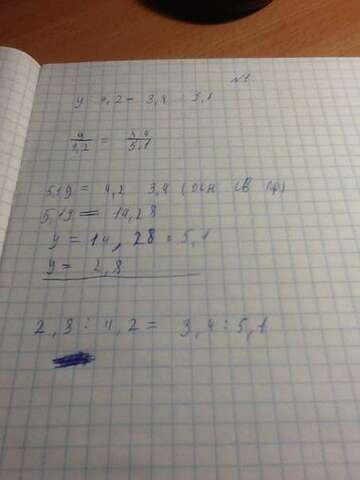 №1
y : 4,2 = 3,4 : 5,1
y/4,2 = 3,4/5,1
5,1y = 4,2 · 3,4 (осн. св. пр)
5,1y = 14,28
y = 14,28 : 5,1
y = 2,8
2,8 : 4,2 = 3,4 : 5,1